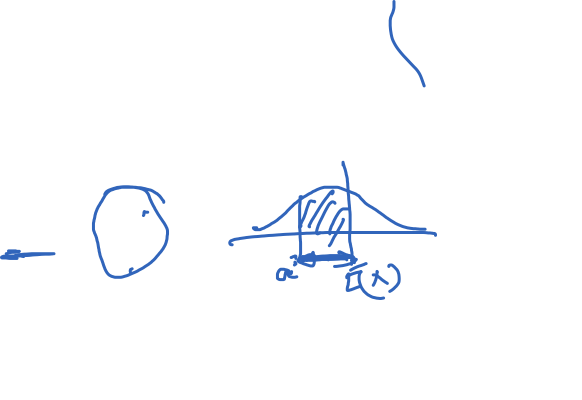 a E(x)